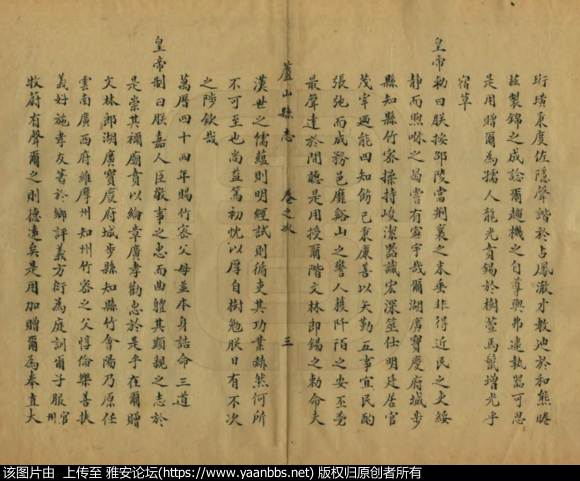 珩璜東度佐隱聲諧於占鳳澈水教池於和熊睠
茲製錦之成諗爾趨機之自尊與弗逮執器可思
是用贈爾為孺人龍光賁錫於樹萱馬鬣增光乎
宿草
皇帝勅曰朕按邵陵當荆襄之末奉非得近民之吏綏
靜而煦咻之曷嘗有寧宇哉爾湖廣寶慶府城步
縣知縣竹密操持峻潔器識宏深筮仕明廷居官
茂宰迺能四知飭己秉廉善以矢勤五事宜民酌
張弛而成務邑靡谿山之警人獲阡陌之安丕蜚
最聲達於聞聽是用授爾階文林郎錫之勅命夫
蘆山縣志 卷之次 三
漢世之儒蘊則明經試則循吏其功業赫然何所
不可至也尚益篤初忱以厚自樹勉朕日有不次
之陟欽哉
萬曆四十四年賜竹密父母並本身誥命三道
皇帝制曰朕嘉人臣敬事之忠而曲體其顯親之志於
是崇其禰廟賁以綸章廣孝勸忠於是乎在爾贈
文林郎湖廣寶慶府城步縣知縣竹會陽乃原任
雲南廣西府維摩州知州竹密之父惇倫樂善扶
義好施孝友著於鄉評義方衍為庭訓爾子服官州
牧蔚有聲爾之則德遠矣是用加贈爾為奉直大
该图片由 上传至 雅安论坛(https://www.yaanbbs.net) 版权归原创者所有